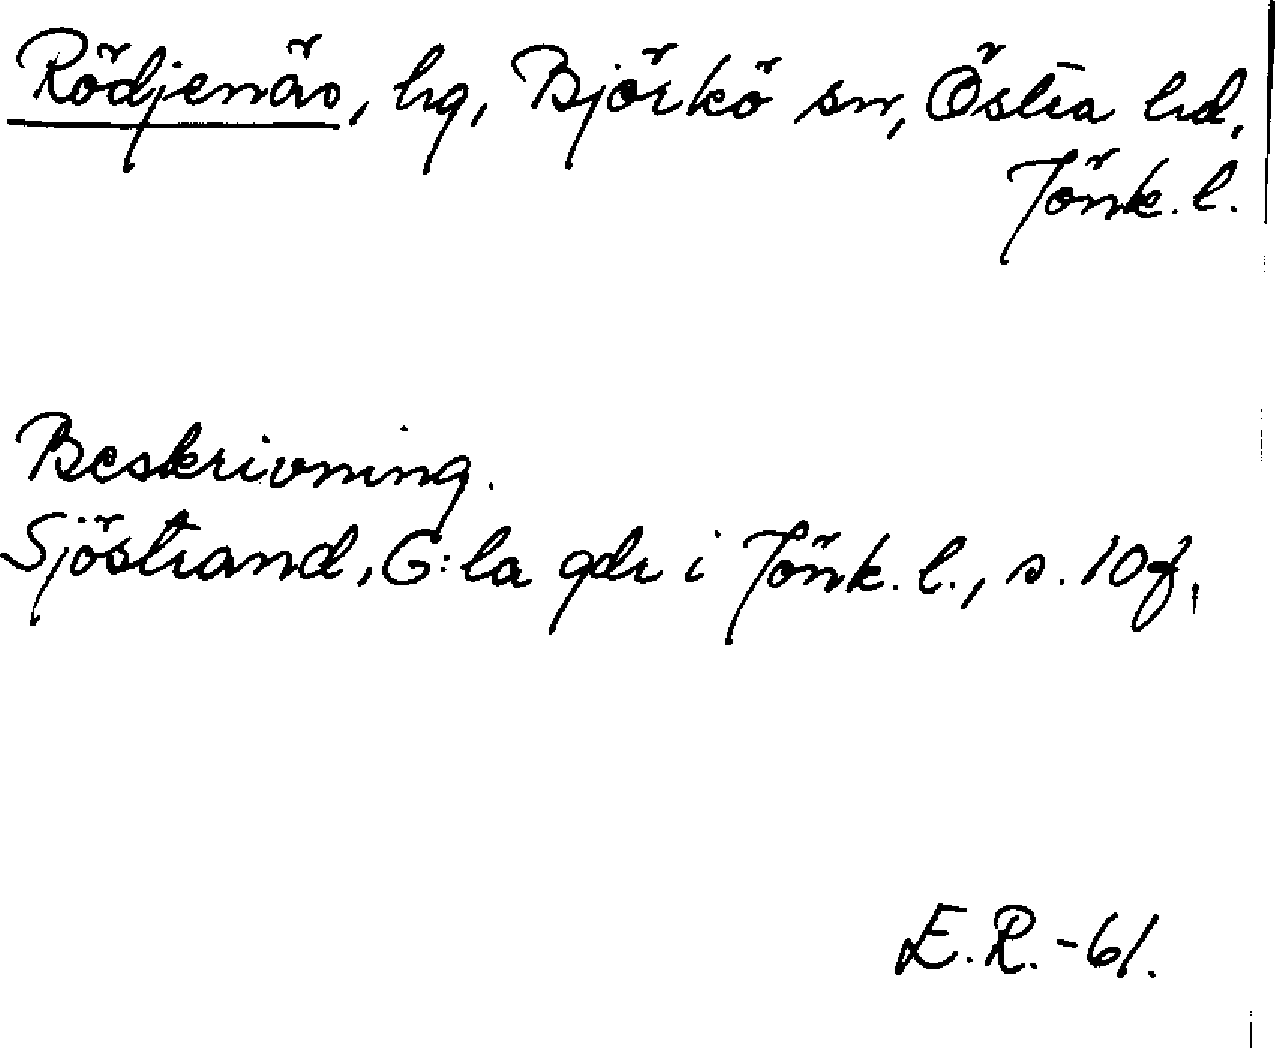 Rödjenäs, hg, Björkö sn, Östra hd,
Jönk. l.
Beskrivning.
Sjöstrand, G:la gdr i Jönk. l., s. 10f.
E.R.-61.